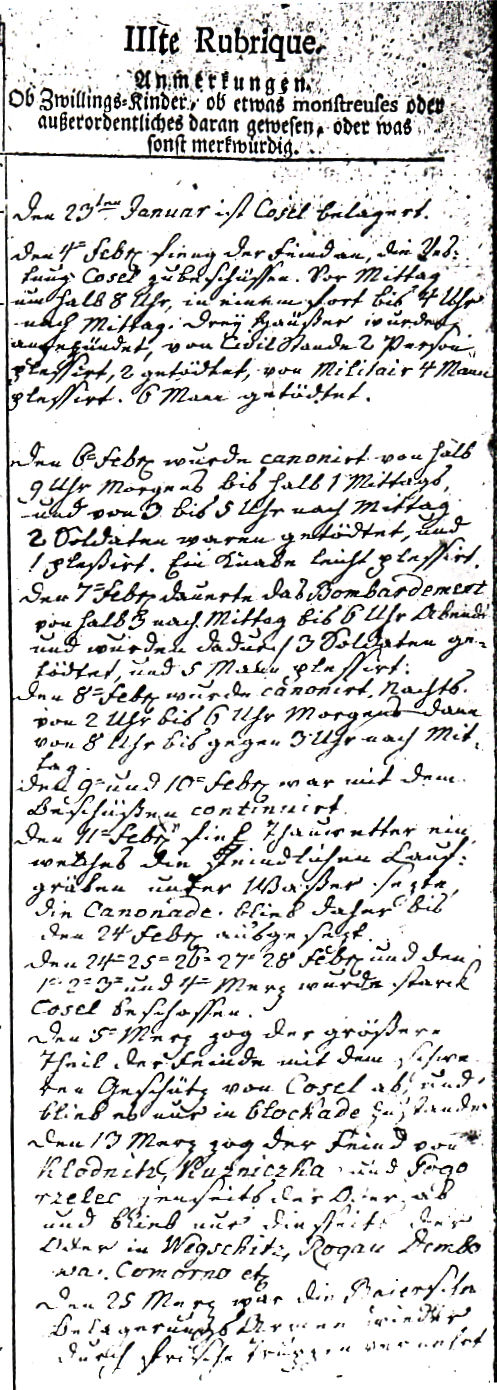 IIIte Rubrique.
Anmerkungen.
Ob Zwillings-Kinder, ob etwas monstreuses oder
außerordentliches daran gewesen, oder was
sonst merkwürdig.
den 23ten Januar ist Cosel belagert.
den 4= Febr fieng der Feind an, die Ves=
tung Cosel zu beschüssen. Vor Mittag
um halb 8 Uhr, in einem fort bis 4 Uhr
nach Mittag. Dreÿ Häußer wurden
angezündet, von Civil Stande 2 Person
plessirt, 2 getödtet, von Militair 4 Mann
plessirt. 6 Mann getödtet.
den 6= Febr wurde canonirt von halb
9 Uhr Morgens bis halb 1 Mittags,
und von 3 bis 5 Uhr nach Mittag
2 Soldaten waren getödtet, und
1 pleßirt. Ein Knabe leicht plessirt.
den 7= Febr dauerte das Bombardement
von halb 3 nach Mittag bis 6 Uhr Abends
und wurden dadurch 3 Soldaten ge=
tödtet, und 5 Mann plessirt.
den 8= Febr wurde canonirt, Nachts
von 2 Uhr bis 6 Uhr Morgens dann
von 8 Uhr bis gegen 3 Uhr nach Mit=
tag.
den 9= und 10= Febr war mit dem
Beschüßen continuirt
den 11= Febr fiel Thauwetter ein
welches die Feindlichen Lauf=
gräben unter Waßer sezte,
die Canonade blieb daher bis
den 24 Febr ausgesezt.
den 24= 25= 26= 27= 28 Febr und den
1= 2= 3= und 4= Merz wurde starck
Cosel beschossen.
den 5= Merz zog der größere
Theil der Feinde mit dem schwe
ren Geschütz von Cosel ab, und
blieb es nur in blockade Zustande
den 13 Merz zog der Feind von
Klodnitz, Kuzniczka und Pogo
rzelec jenseits der Oder, ab
und blieb nur diesseits der
Oder in Wegschütz, Rogau Dembo
wa. Comorno etz
den 25 Merz war die Baiersche
Belagerungs Armee wieder
durch frische Truppen vermehrt